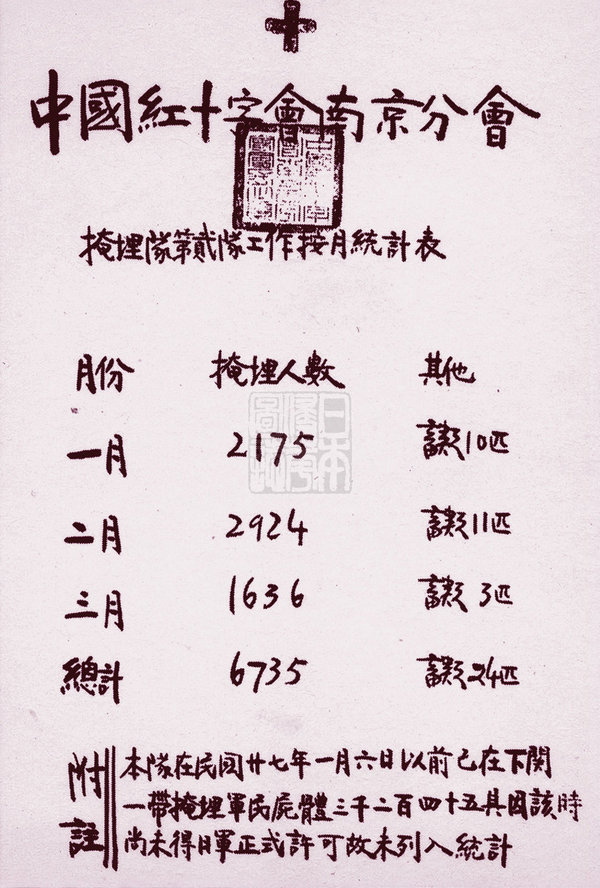 中國紅十字會南京分會
掩埋隊第貳隊工作按月統計表
月份 掩埋人數 其他
一月 2175 10匹
二月 2924 11匹
三月 1636 3匹
總計 6735 24匹
附註
本隊在民囯廿七年一月六日以前已在下関
一帶掩埋軍民屍體三千二百四十五具因該時
尚未得日軍正式許可故未列入統計